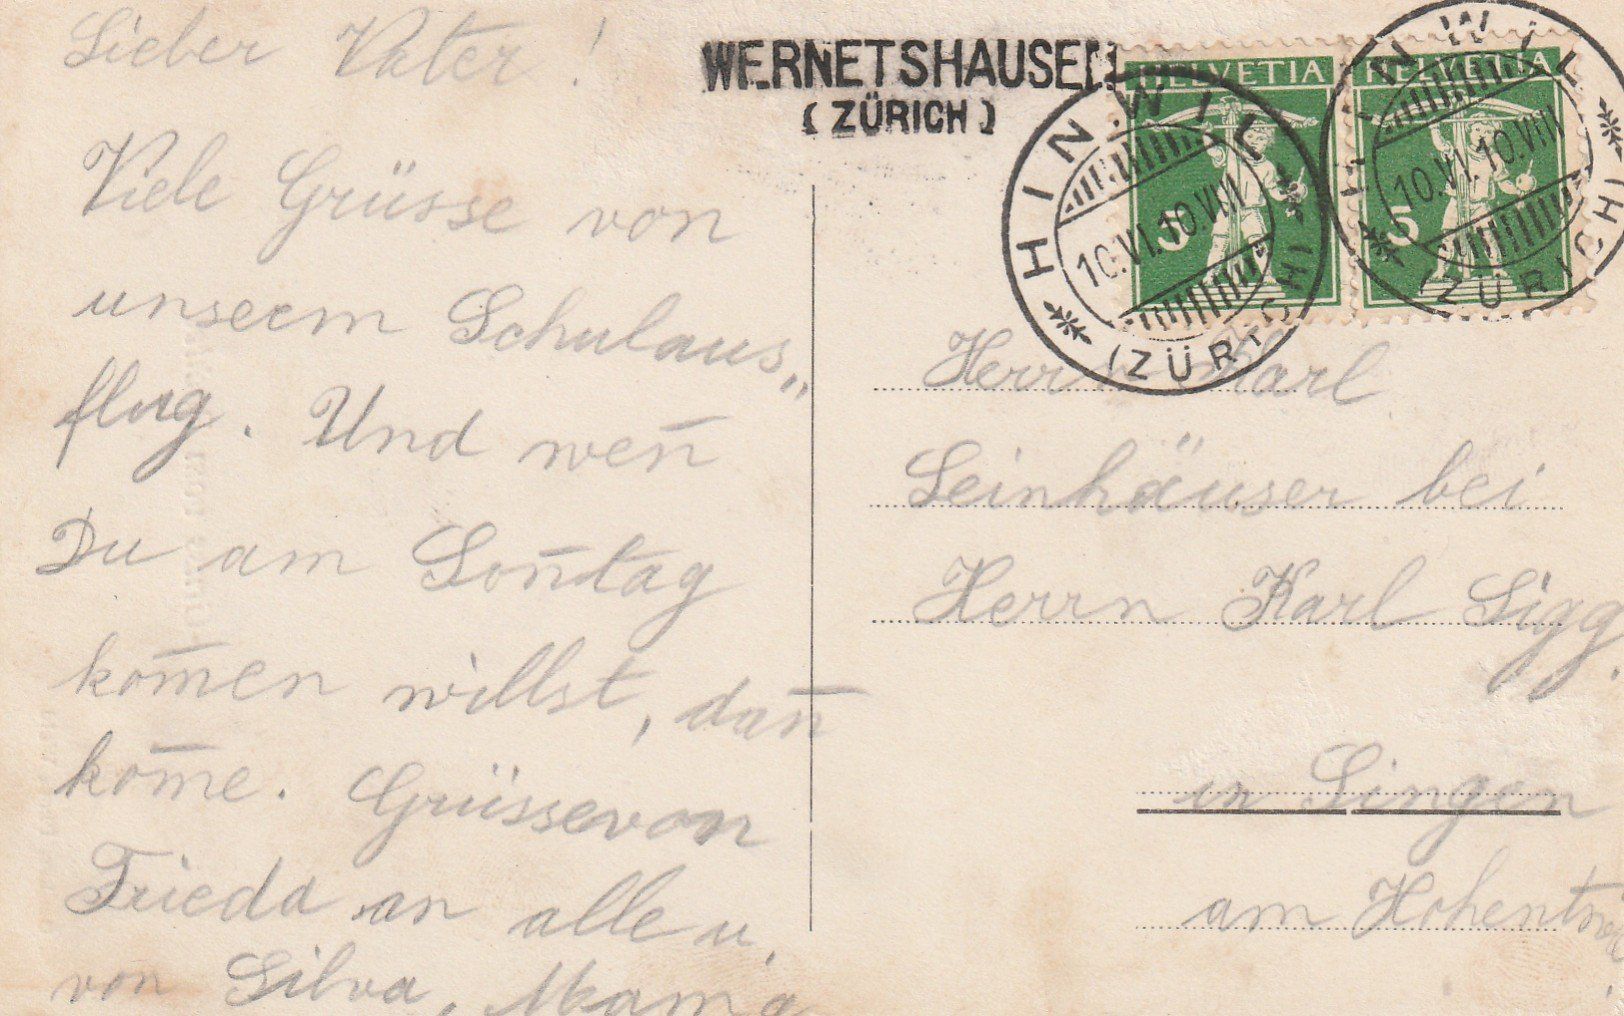 Lieber Vater!
Viele Grüsse von
unserm Schulaus„
flug. Und wen̄
Du am Son̄tag
kom̄en willst, dan̄
kom̄e. Grüsse von
Frieda an alle u.
von Silva, Mama
WERNETSHAUSEN
(ZÜRICH)
HELVETIA
5
HINWIL
10.VI.10.VIII
(ZÜRICH)
HELVETIA
5
HINWIL
10.VI.10.VIII
(ZÜRICH)
Herrn Karl
Leinhäuser bei
Herrn Karl Sigg.
in Singen
am Hohentwiel